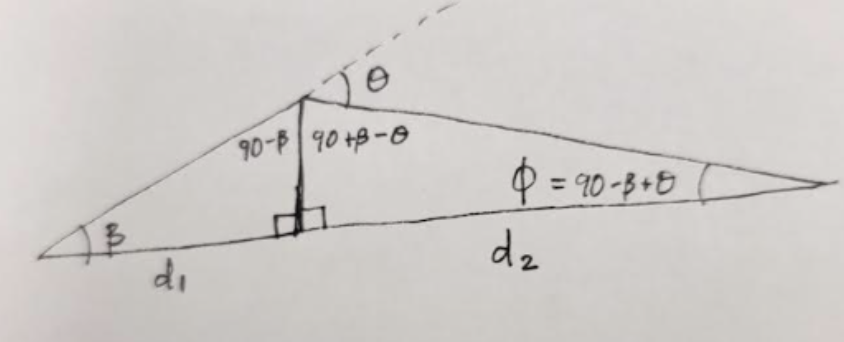 θ
90-β
90+β-θ
ϕ = 90-β+θ
β
d₁
d₂